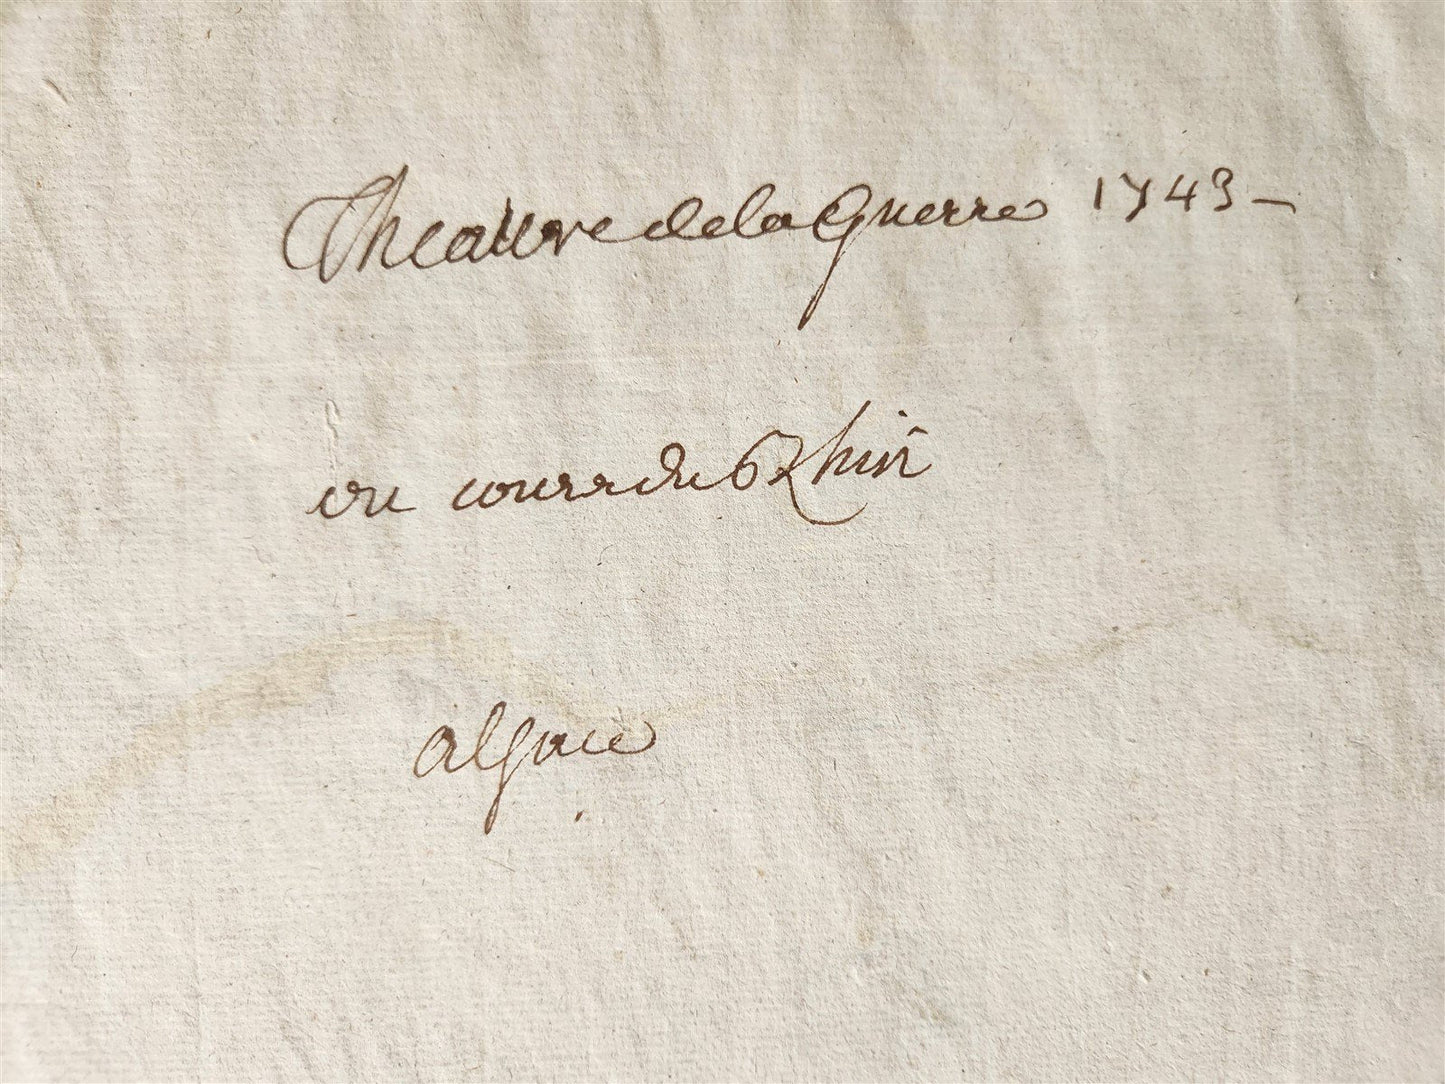 Theatre de la Guerre 1743 -
ou cours du Rhin
alsace